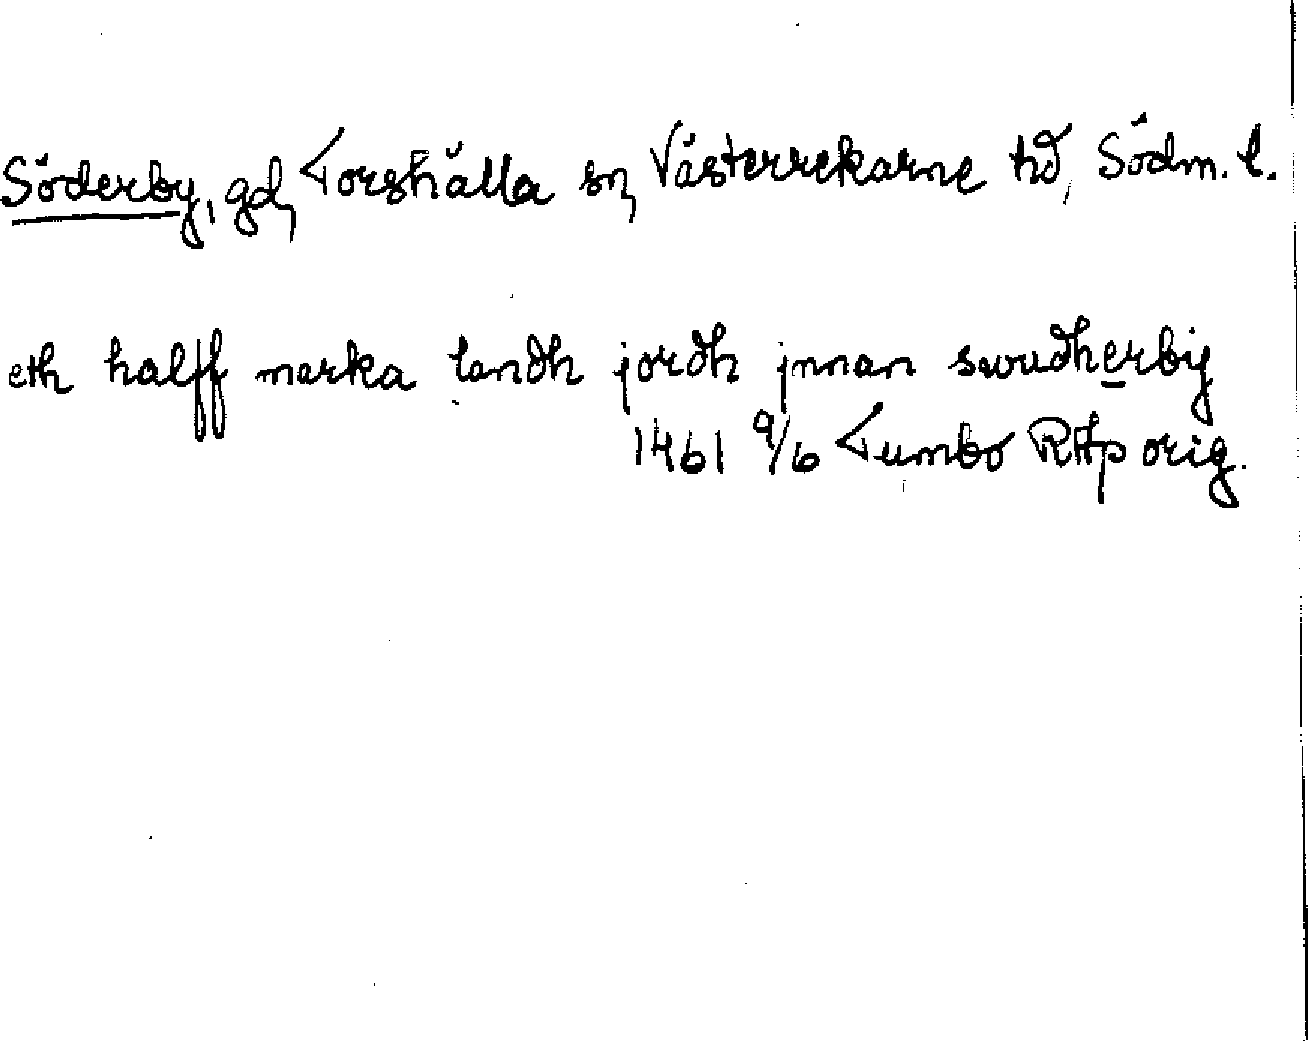 Söderby, gd, Torshälla sn, Västerrekarne hd, Södm. l.
eth halff marka landh jordh jnnan swudherby
1461 9/6 Tumbo RAp orig.